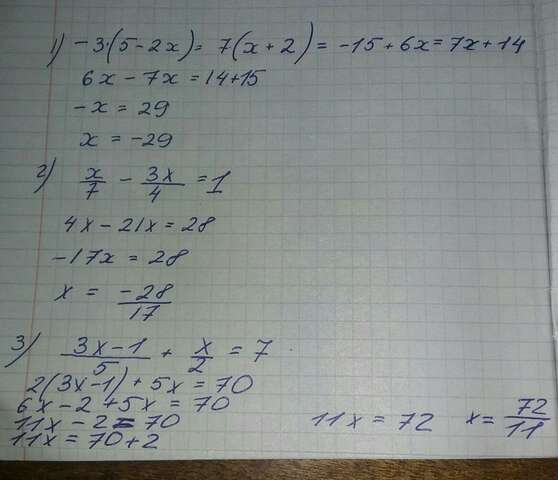 1) -3·(5-2x) = 7(x+2) = -15+6x=7x+14
6x-7x=14+15
-x=29
x=-29
2) x/7 - 3x/4 = 1
4x-21x=28
-17x=28
x = -28/17
3) (3x-1)/5 + x/2 = 7
2(3x-1)+5x=70
6x-2+5x=70
11x-2=70
11x=70+2
11x=72 x=72/11